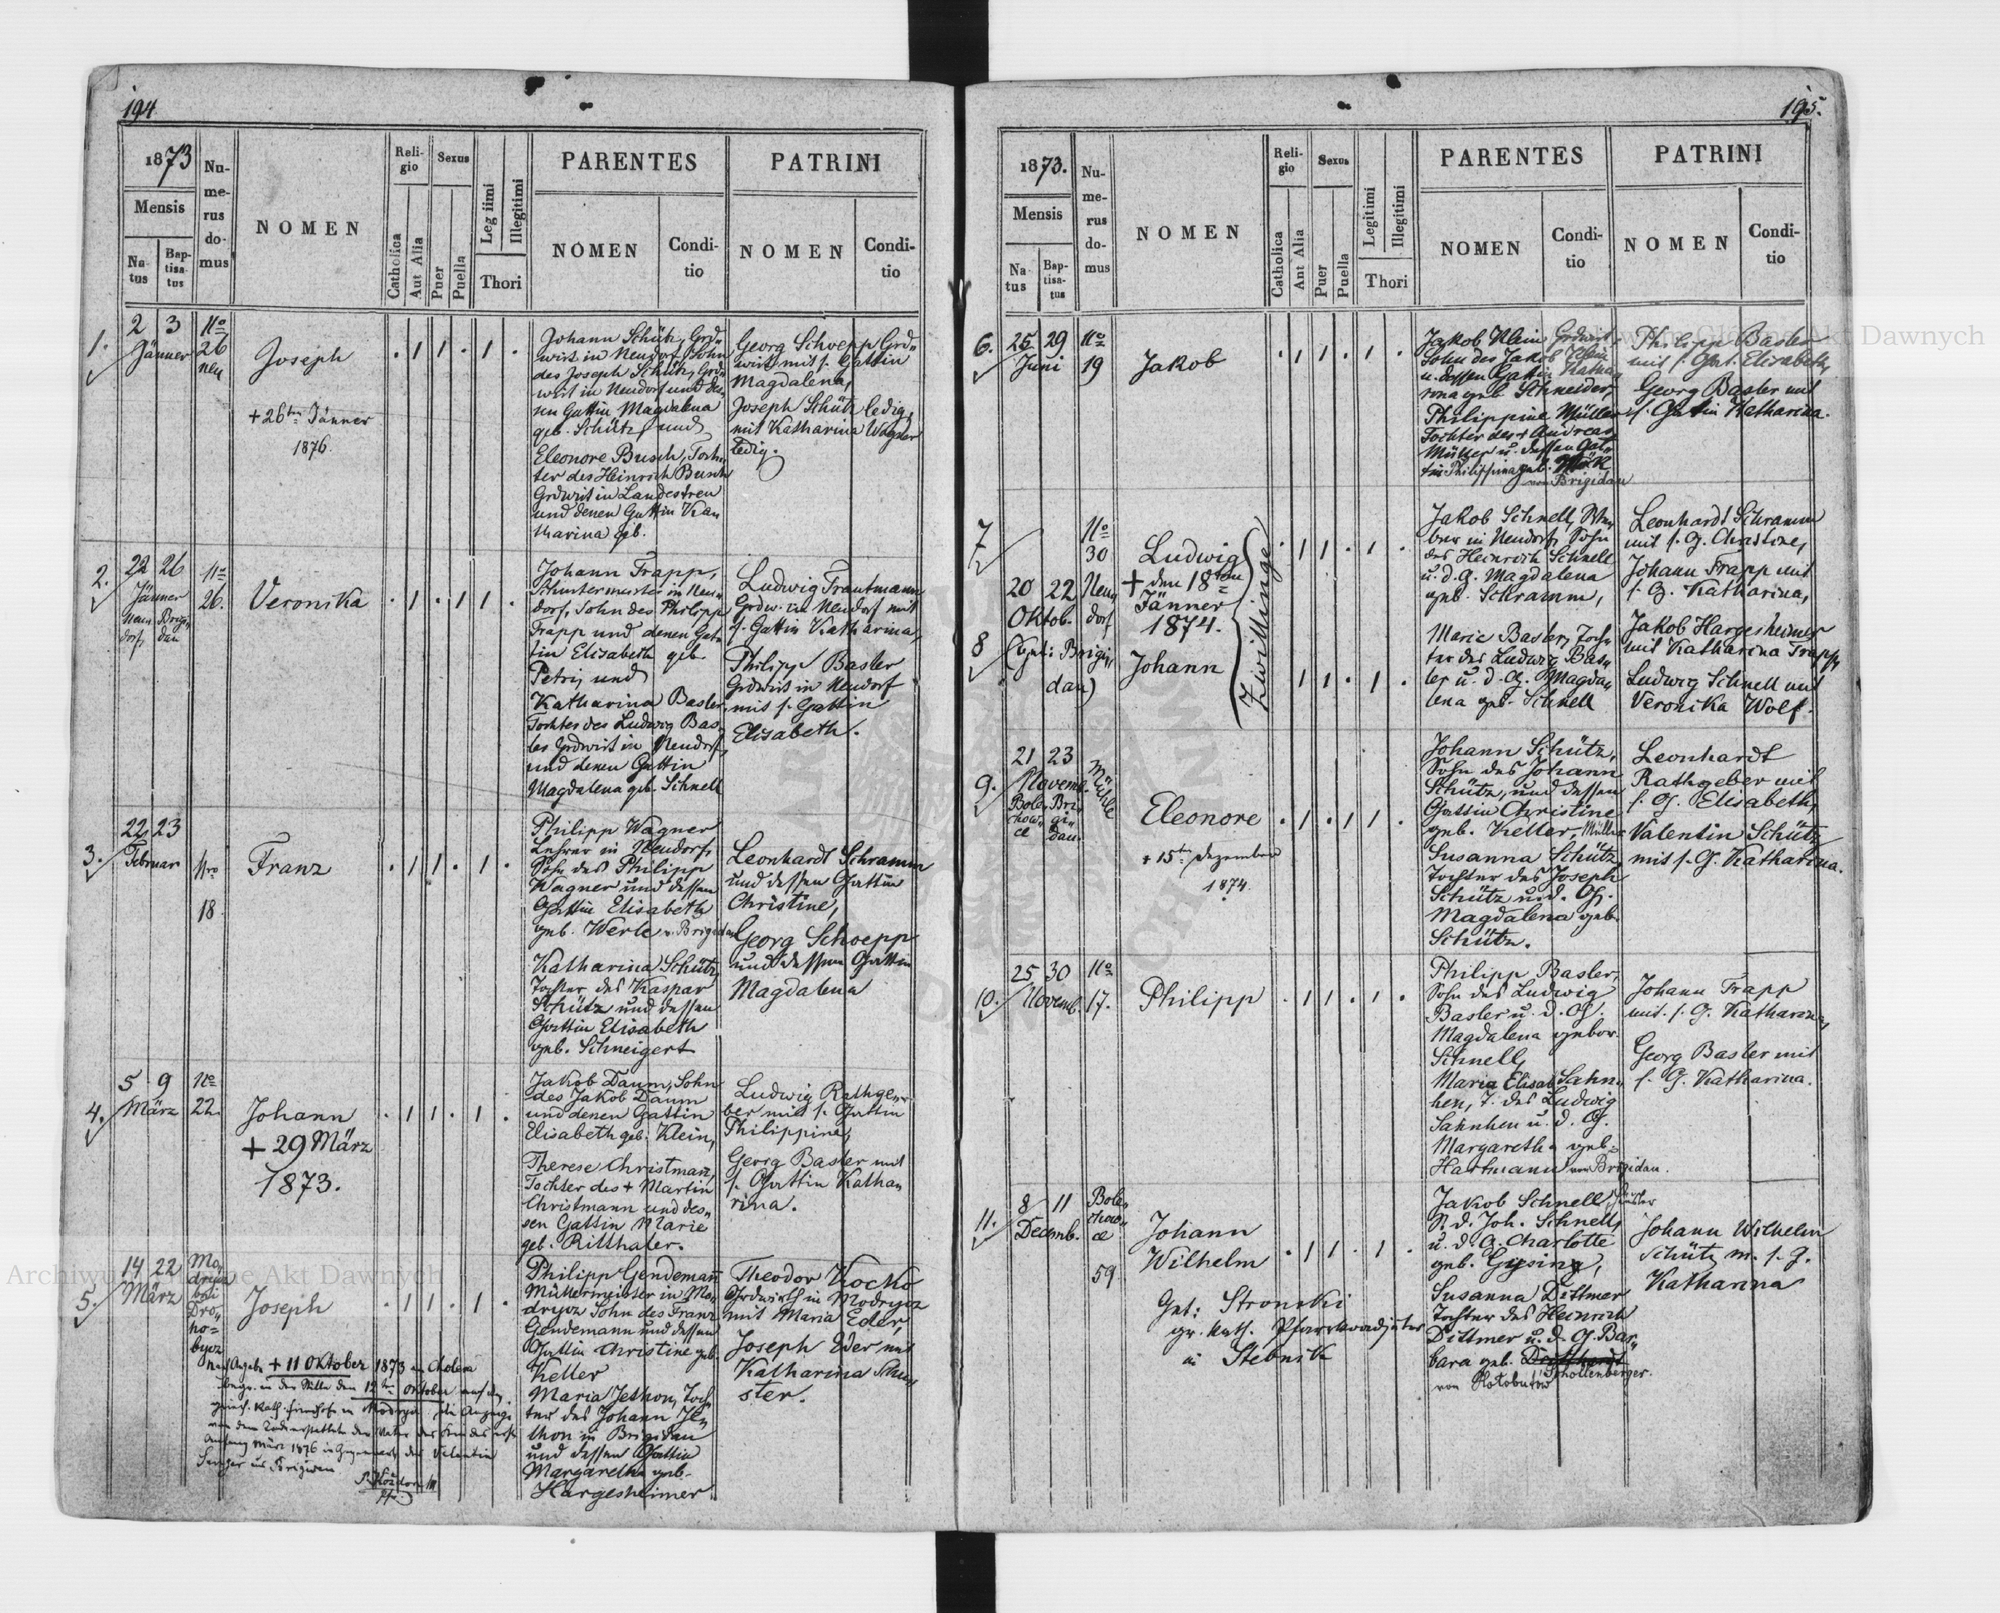 194.
1873
Mensis
Na-
tus
Bap-
tisa-
tus
Nu-
me-
rus
do-
mus
NOMEN
Reli-
gio
Catholica
Aut Alia
Sexus
Puer
Puella
Legitimi
Illegitimi
Thori
PARENTES
NOMEN
Condi-
tio
PATRINI
NOMEN
Condi-
tio
1.
2 3
Jänner
No
26
neu
Joseph
+ 26ten Jänner
1876.
Johann Schütz, Grd-
wirt in Neudorf, Sohn
des Joseph Schütz, Grd-
wirt in Neudorf und des-
sen Gattin Magdalena
geb. Schütz und
Eleonore Busch, Toch-
ter des Heinrich Busch
Grdwirt in Landestreu
und denen Gattin Ka-
tharina geb.
Georg Schoepp Grd-
wirt mit s. Gattin
Magdalena,
Joseph Schütz ledig,
mit Katharina Wagner
ledig.
2.
22 26
Jänner
Neu- Brigi-
dorf, dau
No
26.
Veronika
Johann Trapp,
Schustermeister in Neu-
dorf, Sohn des Philipp
Trapp und denen Gat-
tin Elisabeth geb.
Petri, und
Katharina Basler,
Tochter des Ludwig Bas-
ler Grdwirt in Neudorf,
und denen Gattin
Magdalena geb. Schnell
Ludwig Trautmann
Grdw. in Neudorf mit
s. Gattin Katharina,
Philipp Basler
Grdwirt in Neudorf
mit s. Gattin
Elisabeth.
3.
22 23
Februar
Nro
18
Franz
Philipp Wagner
Lehrer in Neudorf,
Sohn des Philipp
Wagner und dessen
Gattin Elisabeth
geb. Werle v. Brigidau
Katharina Schütz,
Tochter des Kaspar
Schütz und dessen
Gattin Elisabeth
geb. Schneigert
Leonhardt Schramm
und dessen Gattin
Christine,
Georg Schoepp
und dessen Gattin
Magdalena
4.
5 9
März
No
22.
Johann
+ 29 März
1873.
Jakob Daum, Sohn
des Jakob Daum
und denen Gattin
Elisabeth geb. Klein,
Therese Christman,
Tochter des + Martin
Christmann und des-
sen Gattin Marie
geb. Ritthaler.
Ludwig Rathge-
ber mit s. Gattin
Philippine,
Georg Basler mit
s. Gattin Katha-
rina.
5.
14 22
März
Mo-
drycz
bei
Dro-
ho-
bycz
Joseph
Philipp Gendemann
Müllermeister in Mo-
drycz Sohn des Franz
Gendemann und dessen
Gattin Christine geb.
Keller
Maria Jethon, Toch-
ter des Johann Je-
thon in Brigidau
und dessen Gattin
Margaretha geb.
Hargesheimer.
Theodor Kocko
Grdwirth in Modrycz
mit Maria Eder,
Joseph Eder mit
Katharina Schu-
ster.
nach Angabe + 11 Oktober 1873 an Cholera
begr. in der Stille den 12ten Oktober auf dem
griech. kath. Friedhofe in Modrycz die Anzeige
von dem Tode erstattete der Vater des Kindes erst
Anfang März 1876 in Gegenwart des Valentin
195.
1873.
Mensis
Na-
tus
Bap-
tisa-
tus
Nu-
me-
rus
do-
mus
NOMEN
Reli-
gio
Catholica
Aut Alia
Sexus
Puer
Puella
Legitimi
Illegitimi
Thori
PARENTES
NOMEN
Condi-
tio
PATRINI
NOMEN
Condi-
tio
6.
25 29
Juni
No
19
Jakob
Jakob Klein Grdwirt,
Sohn des Jakob Klein
u. dessen Gattin Katha-
rina geb. Schneider,
Philippine Müller
Tochter des + Andreas
Müller u. dessen Gat-
tin Philippina geb.
von Brigidau
Philipp Basler
mit s. Gat. Elisabeth,
Georg Basler mit
s. Gattin Katharina.
7
8
20 22
Oktob.
(get: Brigi-
dau)
No
30
Neu-
dorf
Ludwig
+ den 18ten
Jänner
1874.
Johann
Zwillinge
Jakob Schnell, We-
ber in Neudorf, Sohn
des Heinrich Schnell
u. d. G. Magdalena
geb. Schramm,
Marie Basler, Toch-
ter des Ludwig Bas-
ler u. d. G. Magda-
lena geb. Schnell
Leonhardt Schramm
mit s. G. Christine,
Johann Trapp mit
s. G. Katharina,
Jakob Hargesheimer
mit Katharina Trapp,
Ludwig Schnell mit
Veronika Wolf.
9.
21 23
Novemb.
Bole- Bri-
chow- gi-
ce dau.
Mühle
Eleonore
+ 15ten Dezember
1874.
Johann Schütz,
Sohn des Johann
Schütz, und dessen
Gattin Christine
geb. Keller, Müller
Susanna Schütz,
Tochter des Joseph
Schütz u. d. G.
Magdalena geb.
Schütz.
Leonhardt
Rathgeber mit
s. G. Elisabeth,
Valentin Schütz
mit s. G. Katharina.
10.
25 30
Novemb.
No
17.
Philipp
Philipp Basler,
Sohn des Ludwig
Basler u. d. G.
Magdalena gebor.
Schnell,
Maria Elisab. Sahn-
hen, T. des Ludwig
Sahnhen u. d. G.
Margaretha geb.
Hartmann von Brigidau.
Johann Trapp
mit. s. G. Katharina,
Georg Basler mit
s. G. Katharina.
11.
8 11
Decemb.
Bole-
chow-
ce
59
Johann
Wilhelm
Get: Stronski
gr. kath. Pfarrkoadjutor
in Stebnik
Jakob Schnell,
S. d. Joh. Schnell,
u. d. G. Charlotte
geb. Gysing,
Susanna Dittmer
Tochter des Heinrich
Dittmer u. d. G. Bar-
bara geb.
Schollenberger.
Johann Wilhelm
Schütz m. s. G.
Katharina
Archiwum Główne Akt Dawnych
Archiwum Główne Akt Dawnych